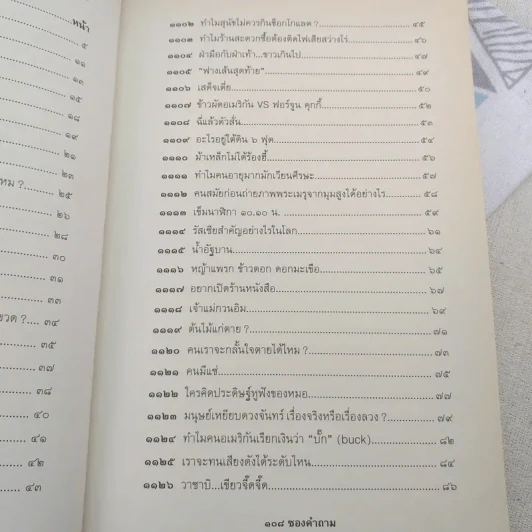 หน้า
๕
๑๑
๑๓
๑๕
๑๘
๑๙
๒๑
๒๓
หม ? ๒๕
๒๖
๒๘
๓๐
๓๑
๓๓
ขวด ?.... ๓๔
๓๕
๓๗
๓๘
๔๐
๔๑
๔๒
๔๓
๑๑๐๒ ทำไมสุนัขไม่ควรกินช็อกโกแลต ? ๔๕
๑๑๐๓ ทำไมร้านสะดวกซื้อต้องติดไฟเสียสว่างไร่ ๔๖
๑๑๐๔ ฝ่ามือกับฝ่าเท้า...ขาวเกินไป ๔๗
๑๑๐๕ "ฟางเส้นสุดท้าย" ๔๙
๑๑๐๖ เสด็จเตี่ย ๕๐
๑๑๐๗ ข้าวผัดอเมริกัน VS ฟอร์จูน คุกกี้ ๕๒
๑๑๐๘ ฉี่แล้วตัวสั่น ๕๓
๑๑๐๙ อะไรอยู่ใต้ดิน ๖ ฟุต ๕๔
๑๑๑๐ ม้าเหล็กไม่ได้ร้องฮี้ ๕๖
๑๑๑๑ ทำไมคนอายุมากมักเวียนศีรษะ ๕๗
๑๑๑๒ คนสมัยก่อนถ่ายภาพพระเมรุจากมุมสูงได้อย่างไร ๕๘
๑๑๑๓ เข็มนาฬิกา ๑๐.๑๐ น. ๕๙
๑๑๑๔ รัสเซียสำคัญอย่างไรในโลก ๖๑
๑๑๑๕ น้ำอัฐบาน ๖๔
๑๑๑๖ หญ้าแพรก ข้าวตอก ดอกมะเขือ ๖๕
๑๑๑๗ อยากเปิดร้านหนังสือ ๖๗
๑๑๑๘ เจ้าแม่กวนอิม ๖๙
๑๑๑๙ ต้นไม้แก่ตาย ? ๗๑
๑๑๒๐ คนเราจะกลั้นใจตายได้ไหม ? ๗๓
๑๑๒๑ คนมีแซ่ ๗๕
๑๑๒๒ ใครคิดประดิษฐ์หูฟังของหมอ ๗๗
๑๑๒๓ มนุษย์เหยียบดวงจันทร์ เรื่องจริงหรือเรื่องลวง ? ๗๙
๑๑๒๔ ทำไมคนอเมริกันเรียกเงินว่า "บั๊ก" (buck) ๘๒
๑๑๒๕ เราจะทนเสียงดังได้ระดับไหน ๘๔
๑๑๒๖ วาซาบิ...เขียวจี๊ดจี๊ด ๘๖
๑๐๘ ซองคำถาม